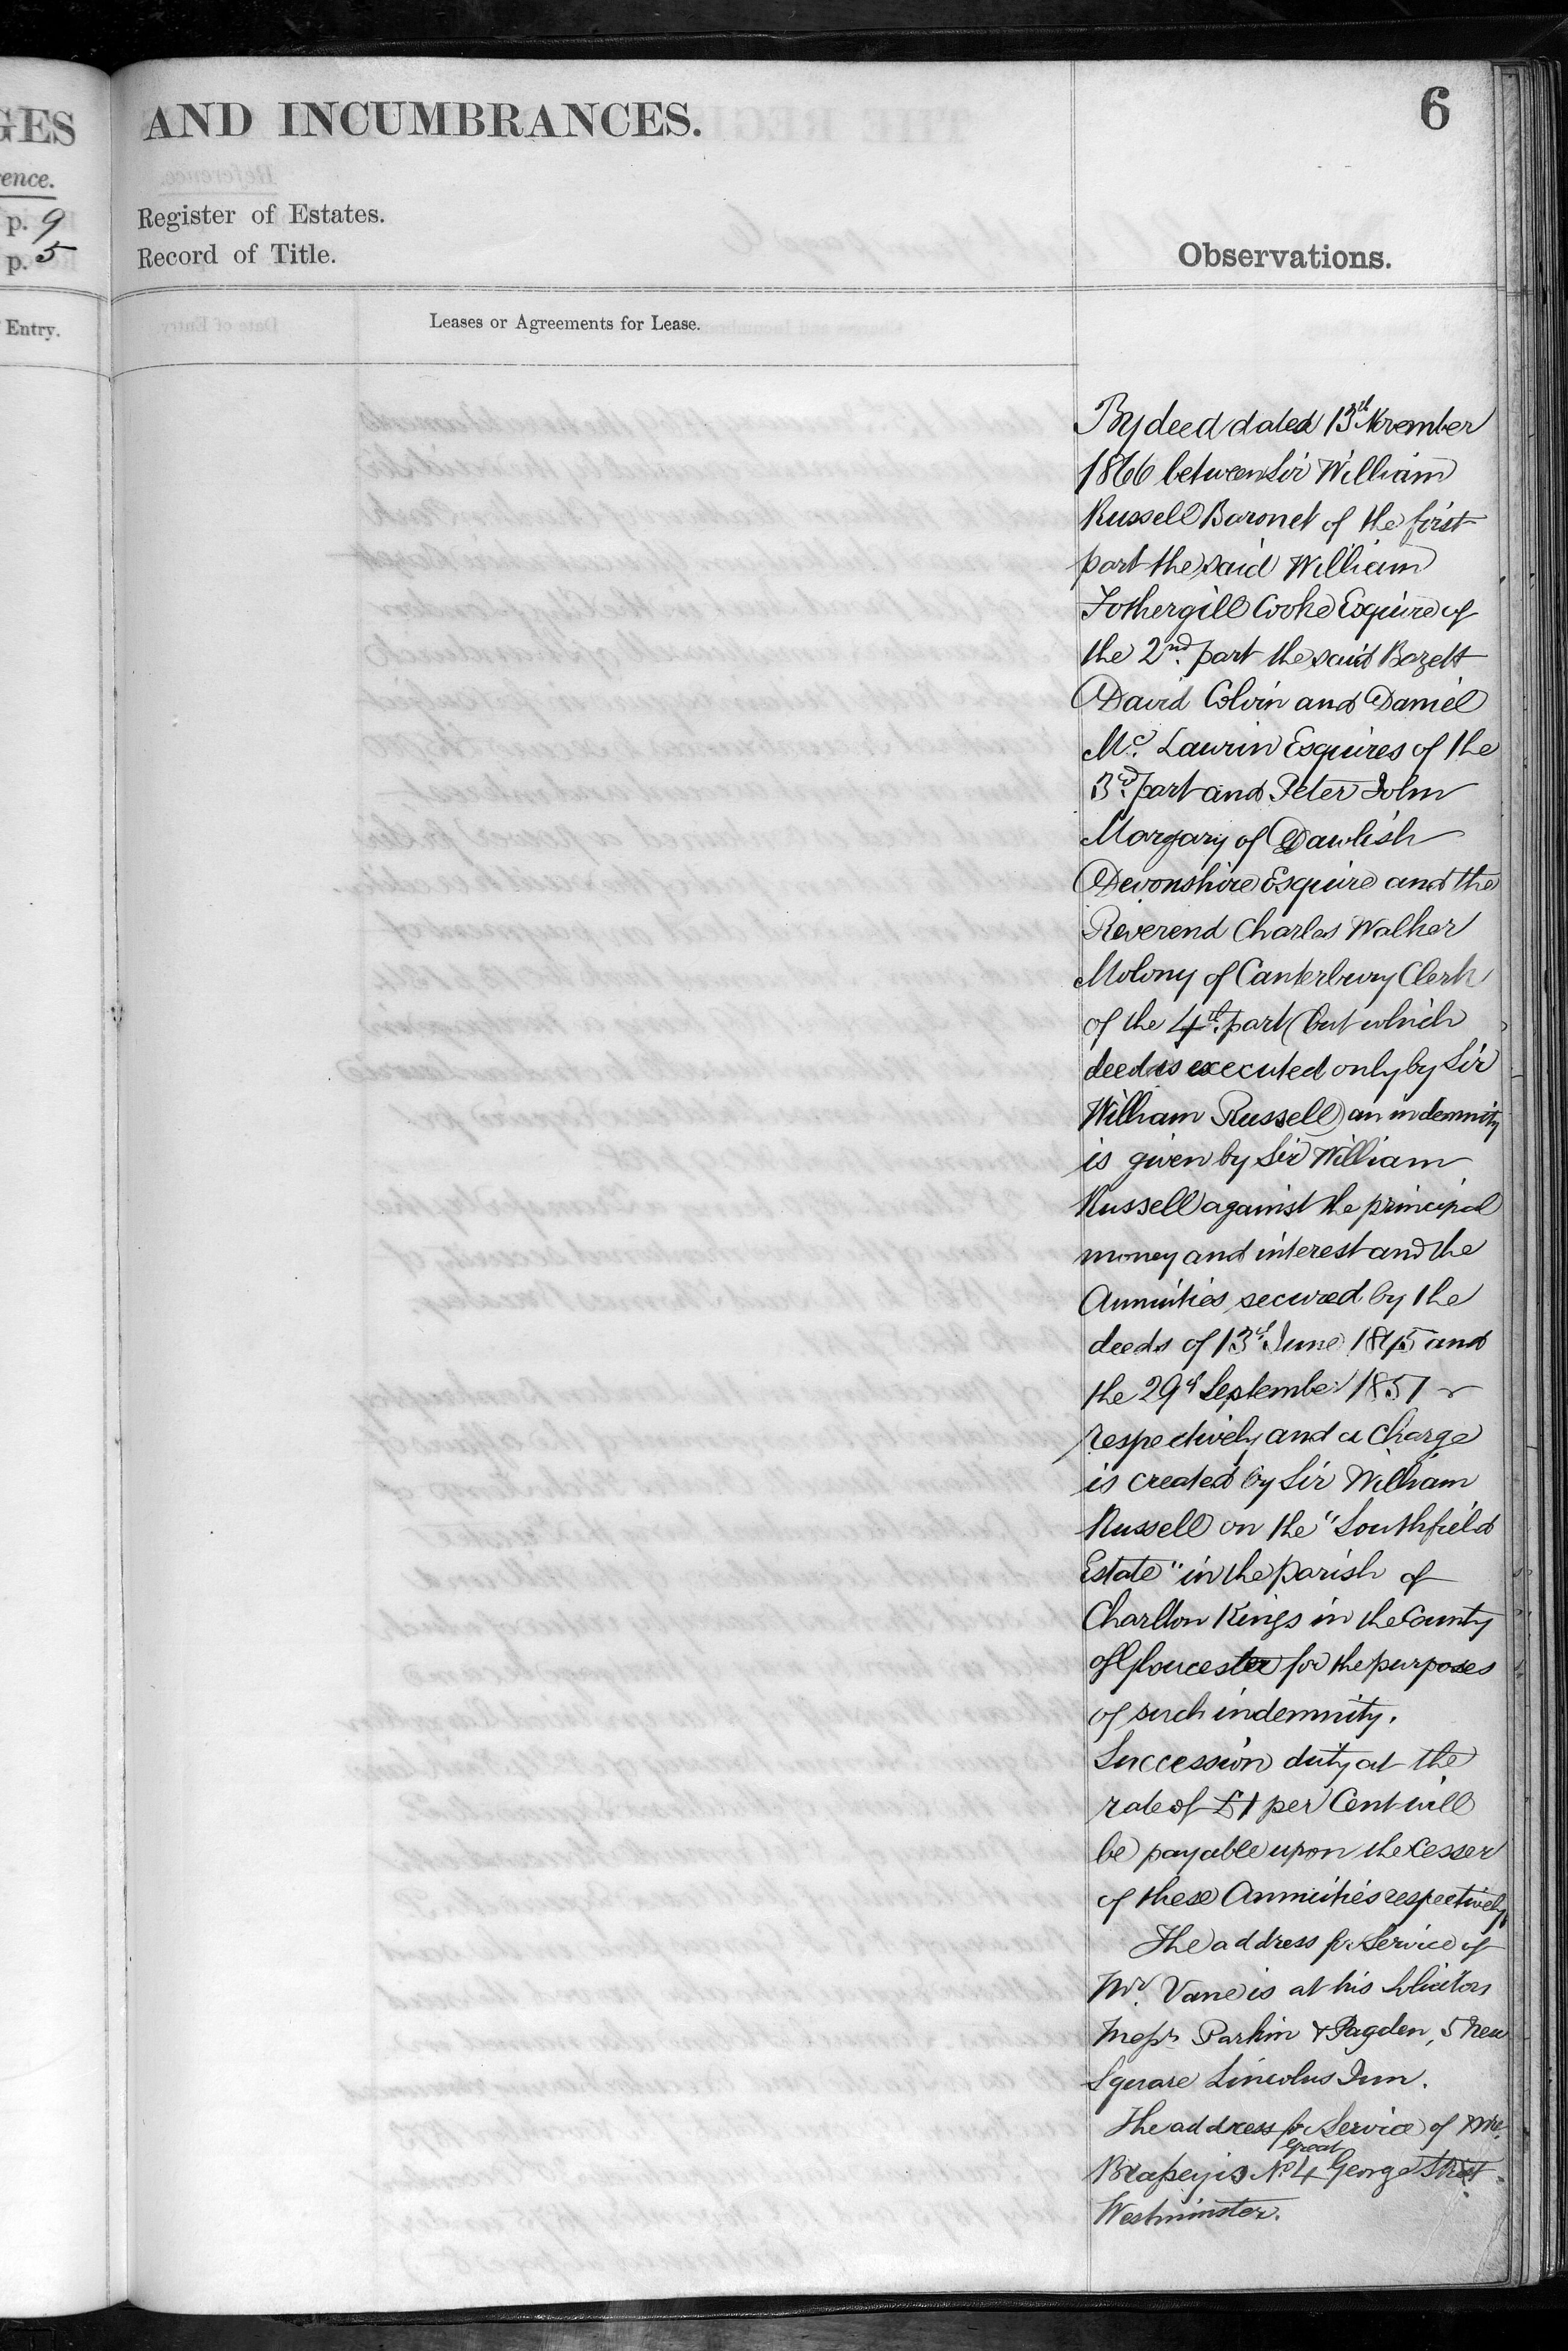 GES
AND INCUMBRANCES.
6
ence.
p. 9
Register of Estates.
p. 5
Record of Title.
Observations.
Entry.
Leases or Agreements for Lease.
By deed dated 13th November
1866 between Sir William
Russell Baronet of the first
part the said William
Fothergill Cooke Esquire of
the 2nd. part the said Bazett
David Colvin and Daniel
Mc. Laurin Esquires of the
3rd. part and Peter John
Margary of Dawlish
Devonshire Esquire and the
Reverend Charles Walker
Molony of Canterbury Clerk
of the 4th. part (but which
deed is executed only by Sir
William Russell) an indemnity
is given by Sir William
Russell against the principal
money and interest and the
Annuities secured by the
deeds of 13th June 1845 and
the 29th September 1857
respectively and a charge
is created by Sir William
Russell on the "Southfield
Estate" in the parish of
Charlton Kings in the County
of Gloucester for the purposes
of such indemnity.
Succession duty at the
rate of £1 per Cent will
be payable upon the cesser
of these Annuities respectively.
The address for Service of
Mr. Vane is at his Solicitors
Messrs Parkin & Pagden, 5 New
Square Lincolns Inn.
The address for Service of Mr.
Great
Brassey is No. 4 George Street
Westminster.